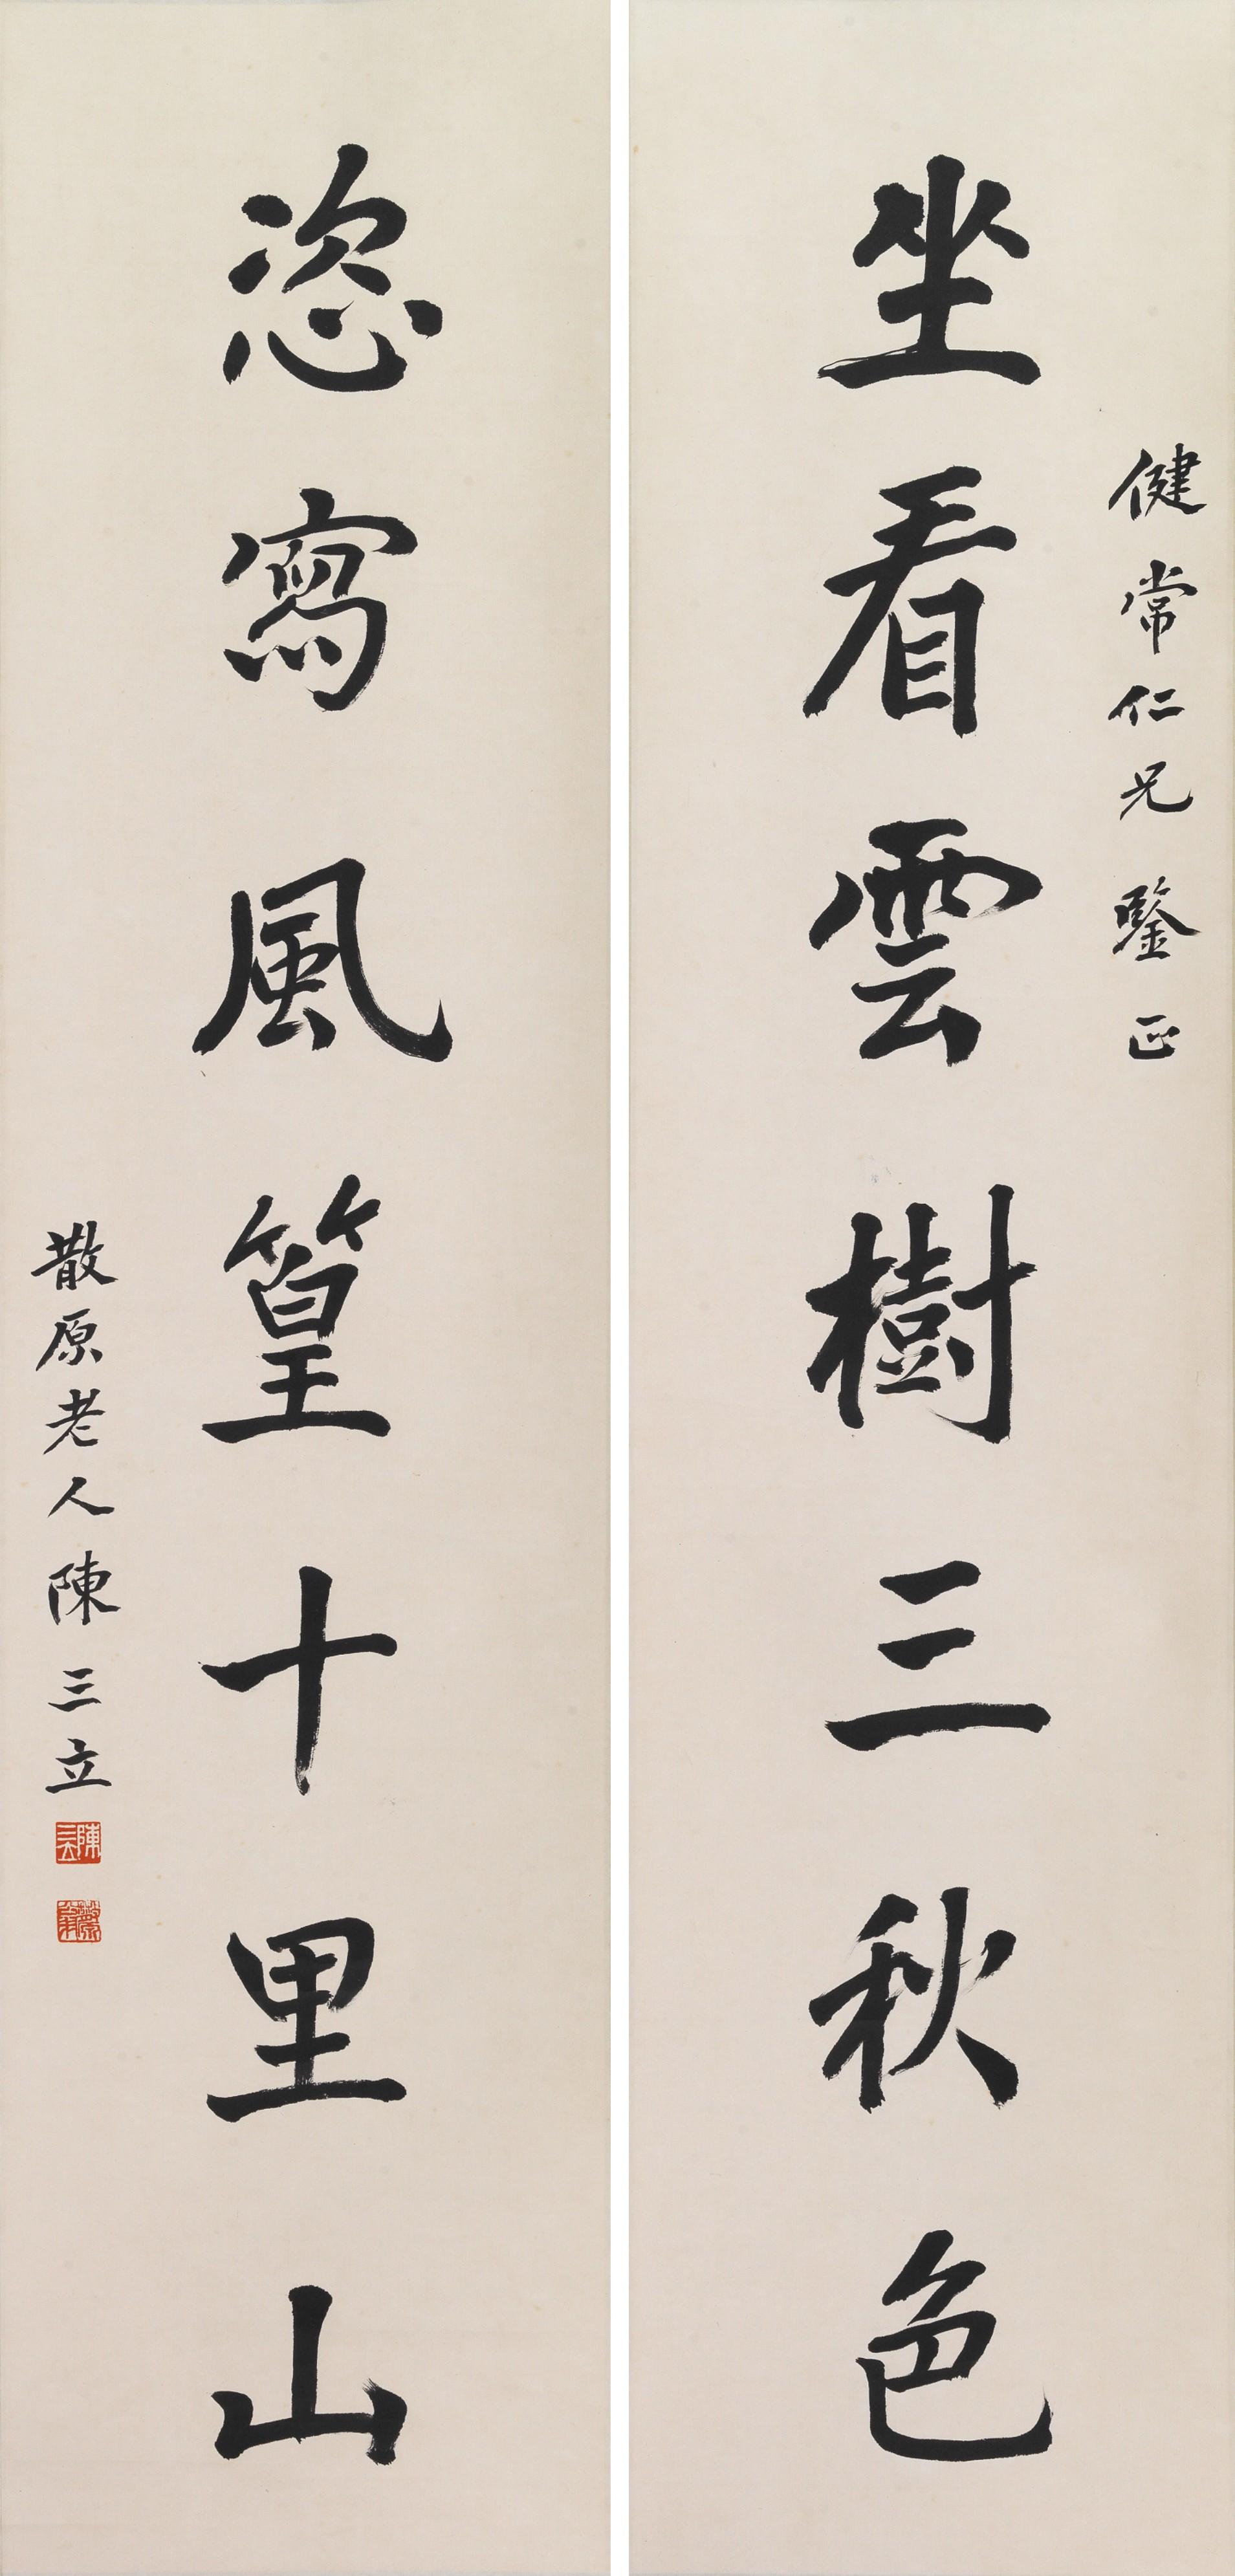 健常仁兄鑒正
坐看雲樹三秋色
恣寫風篁十里山
散原老人陳三立
陳三立